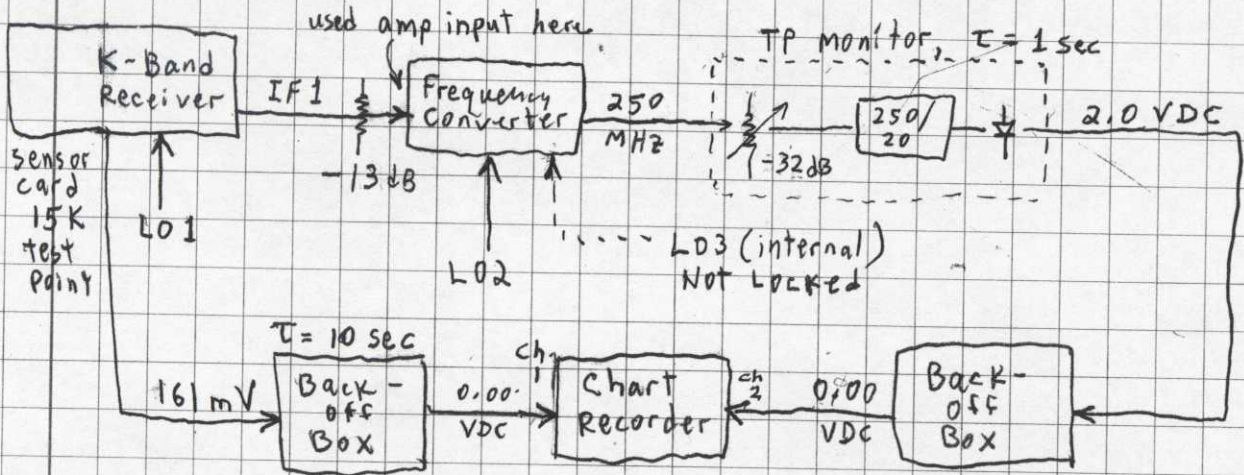 used amp input here
TP monitor, τ = 1 sec
K-Band
Receiver
IF1
Frequency
Converter
250
MHZ
250/
20
2.0 VDC
-13 dB
-32 dB
sensor
card
15K
test
point
LO1
LO2
LO3 (internal)
Not Locked
τ = 10 sec
161 mV
Back-
off
Box
0.00
VDC
ch
1
Chart
Recorder
ch
2
0.00
VDC
Back-
off
Box